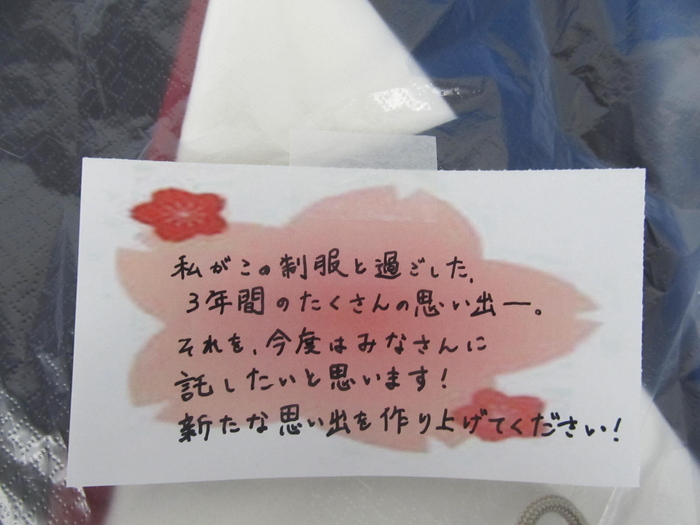 私がこの制服と過ごした、
3年間のたくさんの思い出―。
それを、今度はみなさんに
託したいと思います!
新たな思い出を作り上げてください!